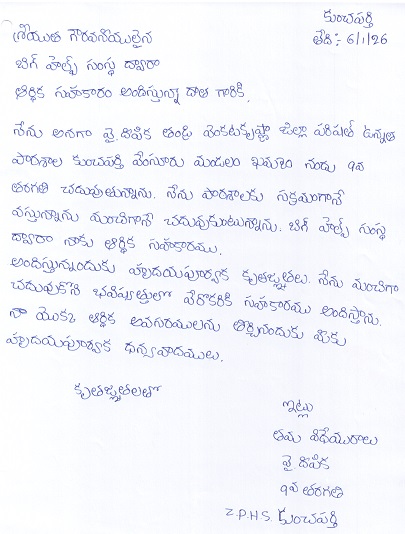 కుంచపర్తి
తేది:- 6/1/26
శ్రీయుత గౌరవనీయులైన
బిగ్ హెల్ప్ సంస్థ ద్వారా
ఆర్థిక సహకారం అందిస్తున్నా దాత గారికి,
నేను అనగా వై.దీపిక తండ్రి వెంకటకృష్ణా జిల్లా పరిషత్ ఉన్నత
పాఠశాల కుంచపర్తి వేంసూరు మండలం ఖమ్మం నందు 9వ
తరగతి చదువుతున్నాను. నేను పాఠశాలకు సక్రమంగానే
వస్తున్నాను మంచిగానే చదువుకుంటున్నాను. బిగ్ హెల్ప్ సంస్థ
ద్వారా నాకు ఆర్థిక సహకారము
అందిస్తున్నందుకు హృదయపూర్వక కృతజ్ఞతలు. నేను మంచిగా
చదువుకొని భవిష్యత్తులో వేరొకరికి సహకారము అందిస్తాను.
నా యొక్క ఆర్థిక అవసరములను తీర్చినందుకు మీకు
హృదయపూర్వక ధన్యవాదములు.
కృతజ్ఞతలతో
ఇట్లు
తమ విధేయురాలు
వై దీపిక
9వ తరగతి
Z.P.H.S. కుంచపర్తి